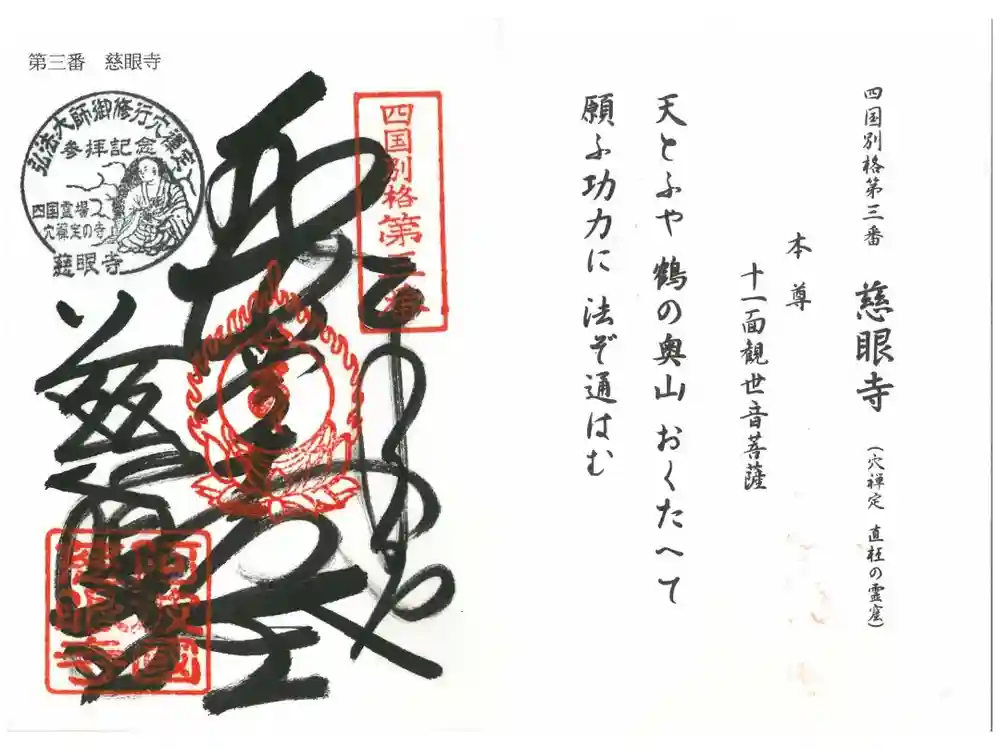 四国別格第三番 慈眼寺 (穴禅定 直枉の霊窟)
本尊
十一面観世音菩薩
天とふや 鶴の奥山 おくたへて
願ふ功力に 法ぞ通はむ
第三番 慈眼寺
弘法大師御修行穴禪定
参拝記念
四国霊場
穴禪定の寺
慈眼寺
四国別格第三番
阿波國
慈眼寺